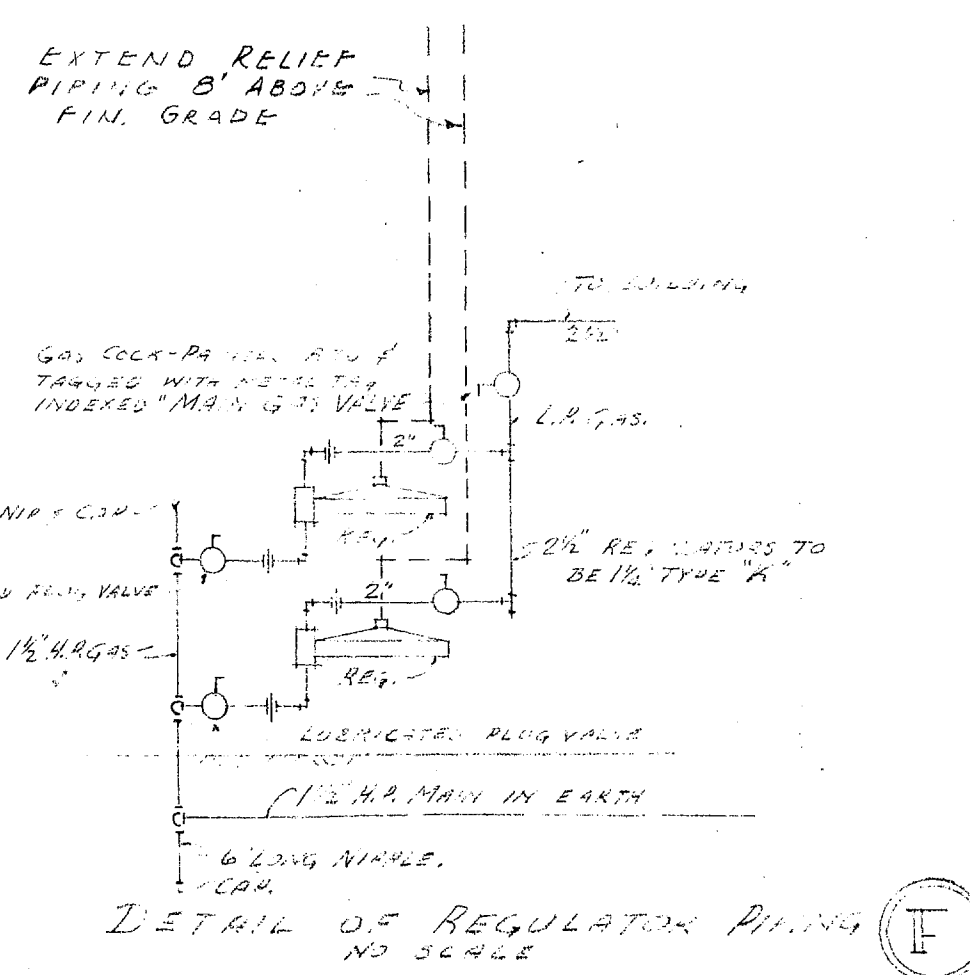 EXTEND RELIEF
PIPING 8' ABOVE
FIN. GRADE
TO BUILDING
2½"
GAS COCK-
TAGGED WITH METAL TAG
INDEXED "MAIN GAS VALVE
L.P. GAS.
2"
REG.
NIP & CAP
2½" REGULATORS TO
BE 1½" TYPE "K"
PLUG VALVE
2"
1½" H.P. GAS
REG.
LUBRICATED PLUG VALVE
1½" H.P. MAIN IN EARTH
6" LONG NIPPLE.
CAP.
DETAIL OF REGULATOR PIPING
NO SCALE
F